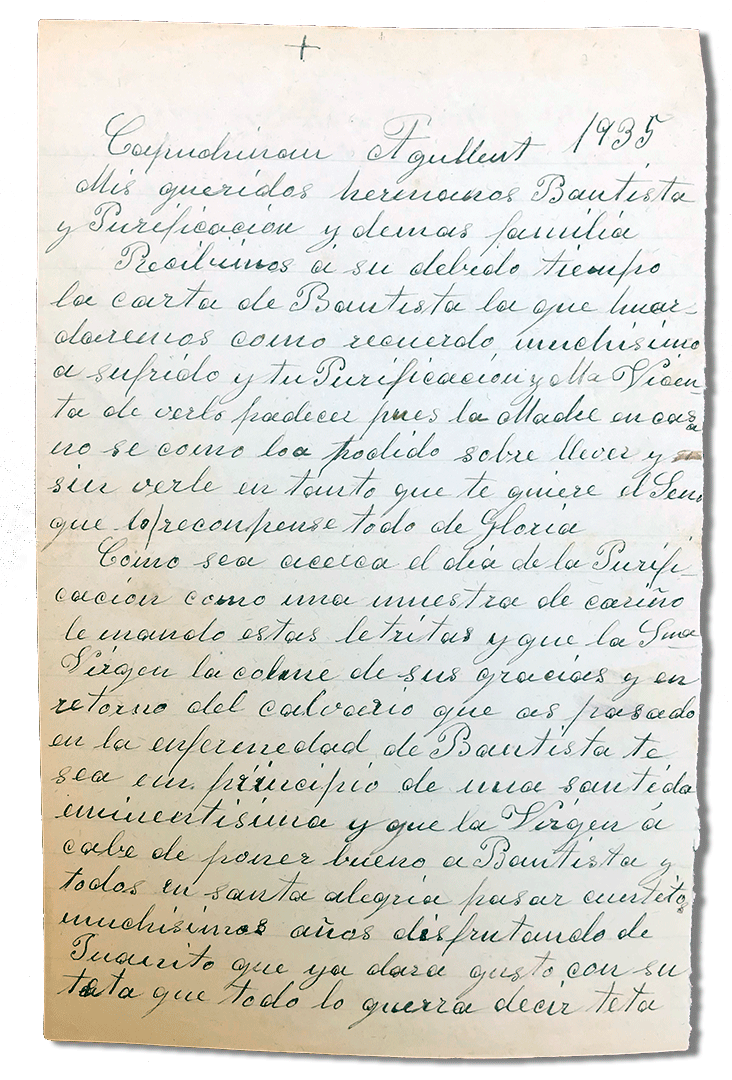 +
Capuchinas Agullent 1935
Mis queridos hermanos Bautista
y Purificación y demas familia
Recibimos á su debido tiempo
la carta de Bautista la que huar-
daremos como recuerdo muchísimo
a sufrido y tu Purificación y Mª Vicen-
ta de verlo padecer pues la Madre en casa
no se como loa podido sobre llever y
sin verle en tanto que te quiere el Seno
que lo reconpense todo de Gloria
Como sea acerca el día de la Purifi-
cación como una muestra de cariño
le mando estas letritas y que la Sma
Virgen la colme de sus gracias y en
retorno del calvario que as pasado
en la enfermedad de Bautista te
sea em principio de una santida
eminentisima y que la Virgen á
cabe de poner bueno a Bautista y
todos en santa alegria pasar
muchísimos años disfrutando de
Juanito que ya dara gusto con su
tata que todo lo querra decir teta